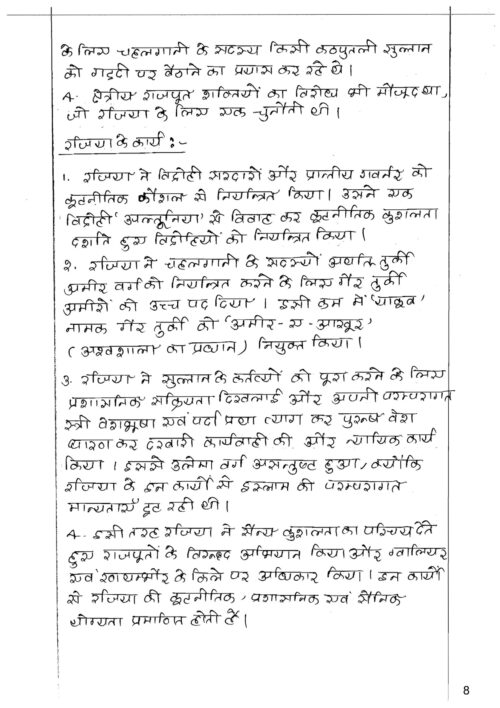 के लिए चहलगानी के सदस्य किसी कठपुतली सुल्तान
को गद्दी पर बैठाने का प्रयास कर रहे थे।
4. क्षेत्रीय राजपूत शक्तियों का विरोध भी मौजूद था,
जो रजिया के लिए एक चुनौती थी।
रजिया के कार्य :-
1. रजिया ने विद्रोही सरदारों और प्रान्तीय गवर्नर को
कूटनीतिक कौशल से नियन्त्रित किया। उसने एक
विद्रोही 'अल्तूनिया' से विवाह कर कूटनीतिक कुशलता
दर्शाते हुए विद्रोहियों को नियन्त्रित किया।
2. रजिया ने चहलगानी के सदस्यों अर्थात् तुर्की
अमीर वर्ग को नियन्त्रित करने के लिए गैर तुर्की
अमीरों को उच्च पद दिया। इसी क्रम में 'याकूब'
नामक गैर तुर्की को 'अमीर-ए-आखूर'
(अश्वशाला का प्रधान) नियुक्त किया।
3. रजिया ने सुल्तान के कर्तव्यों को पूरा करने के लिए
प्रशासनिक सक्रियता दिखलाई और अपनी परम्परागत
स्त्री वेशभूषा एवं पर्दा प्रथा त्याग कर पुरुष वेश
धारण कर दरबारी कार्यवाही की और न्यायिक कार्य
किया। इससे उलेमा वर्ग असन्तुष्ट हुआ, क्योंकि
रजिया के इन कार्यों से इस्लाम की परम्परागत
मान्यताएँ टूट रही थी।
4. इसी तरह रजिया ने सैन्य कुशलता का परिचय देते
हुए राजपूतों के विरुद्ध अभियान किया और ग्वालियर
एवं रणथम्भौर के किले पर अधिकार किया। इन कार्यों
से रजिया की कूटनीतिक, प्रशासनिक एवं सैनिक
योग्यता प्रमाणित होती है।
8